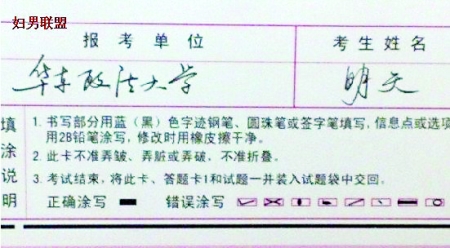 妇男联盟
报考单位
考生姓名
华东政法大学
明天
填涂说明
1. 书写部分用蓝（黑）色字迹钢笔、圆珠笔或签字笔填写，信息点或选项
用2B铅笔涂写，修改时用橡皮擦干净。
2. 此卡不准弄皱、弄脏或弄破，不准折叠。
3. 考试结束，将此卡、答题卡1和试题一并装入试题袋中交回。
正确涂写 错误涂写